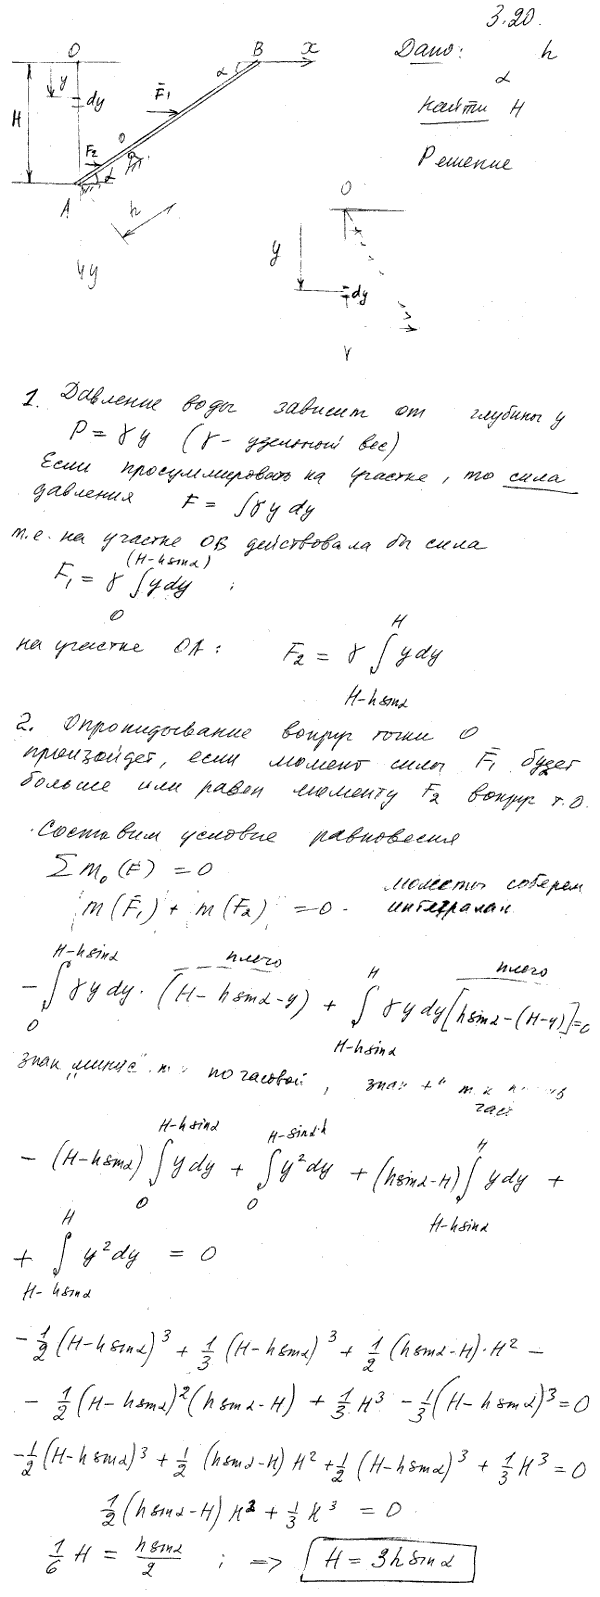 3.20.
Дано: h
α
Найти H
Решение
O B x
y α F̄₁
dy
H
F₂ O
A α
h
y
O
y
dy
1. Давление воды зависит от глубины y
P = γy (γ - удельный вес)
Если просуммировать на участке, то сила
давления F = ∫γy dy
т.е. на участке OB действовала бы сила
F₁ = γ ∫₀^(H-h sinα) y dy ;
на участке OA: F₂ = γ ∫_{H-h sinα}^{H} y dy
2. Опрокидывание вокруг точки O
произойдет, если момент силы F̄₁ будет
больше или равен моменту F₂ вокруг т.O.
Составим условие равновесия
Σ m₀(F̄) = 0
m(F̄₁) + m(F₂) = 0. моменты соберем
интегралам
плечо плечо
- ∫₀^{H-h sinα} γy dy · (H - h sinα - y) + ∫_{H-h sinα}^{H} γy dy [h sinα - (H-y)] = 0
знак „минус" по часовой, знак „+"
час
- (H-h sinα) ∫₀^{H-h sinα} y dy + ∫₀^{H-sinα·h} y² dy + (h sinα - H) ∫_{H-h sinα}^{H} y dy +
+ ∫_{H-h sinα}^{H} y² dy = 0
- 1/2 (H-h sinα)³ + 1/3 (H-h sinα)³ + 1/2 (h sinα-H)·H² -
- 1/2 (H-h sinα)² (h sinα-H) + 1/3 H³ - 1/3 (H-h sinα)³ = 0
- 1/2 (H-h sinα)³ + 1/2 (h sinα-H) H² + 1/2 (H-h sinα)³ + 1/3 H³ = 0
1/2 (h sinα-H) H² + 1/3 H³ = 0
1/6 H = h sinα/2 ; => H = 3h sinα